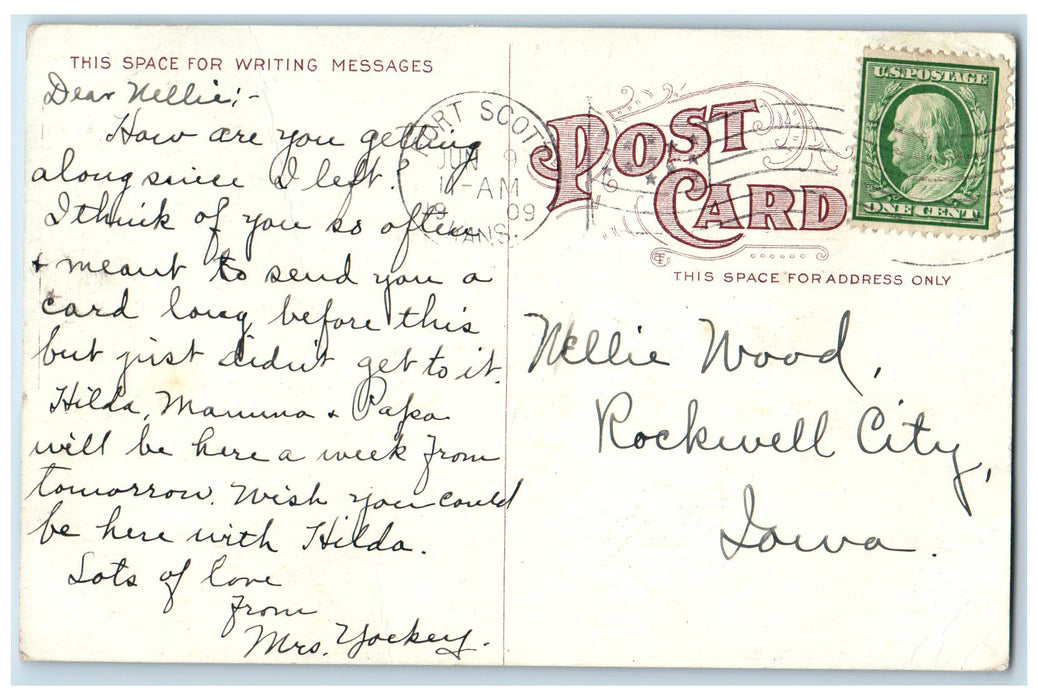 THIS SPACE FOR WRITING MESSAGES
Dear Nellie;-
How are you getting
along since I left?
I think of you so often
+ meant to send you a
card long before this
but just didn't get to it.
Hilda, Mamma + Papa
will be here a week from
tomorrow. Wish you could
be here with Hilda.
Lots of love
From
Mrs. Yockey.
FORT SCOTT
JUN 9
11-AM
1909
KANS.
POST
CARD
U.S. POSTAGE
ONE CENT
THIS SPACE FOR ADDRESS ONLY
Nellie Wood,
Rockwell City,
Iowa.